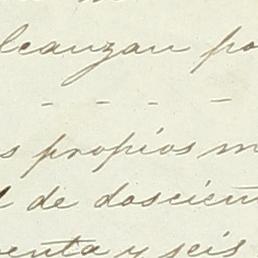 alcanzan po
- - - -
s propios m
l de doscien
enta y seis